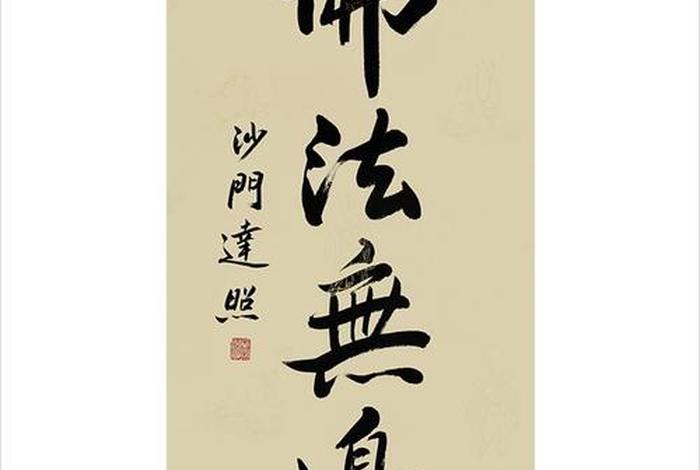 佛法無
沙門達照